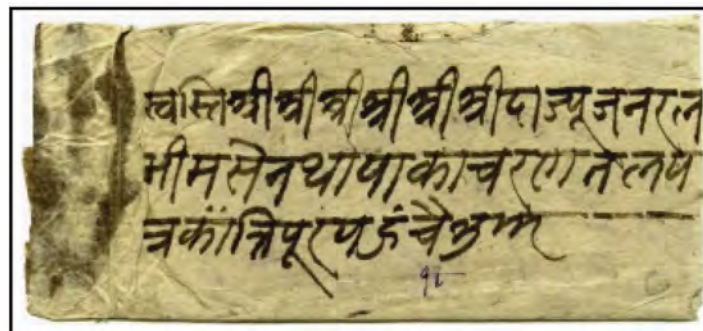 स्वस्तिश्रीश्रीश्रीश्रीश्रीश्रीदाज्यूजनरल
भीमसेनथापाकाचरणतलप
त्रकांन्तिपूरपहुंचैशुभम्